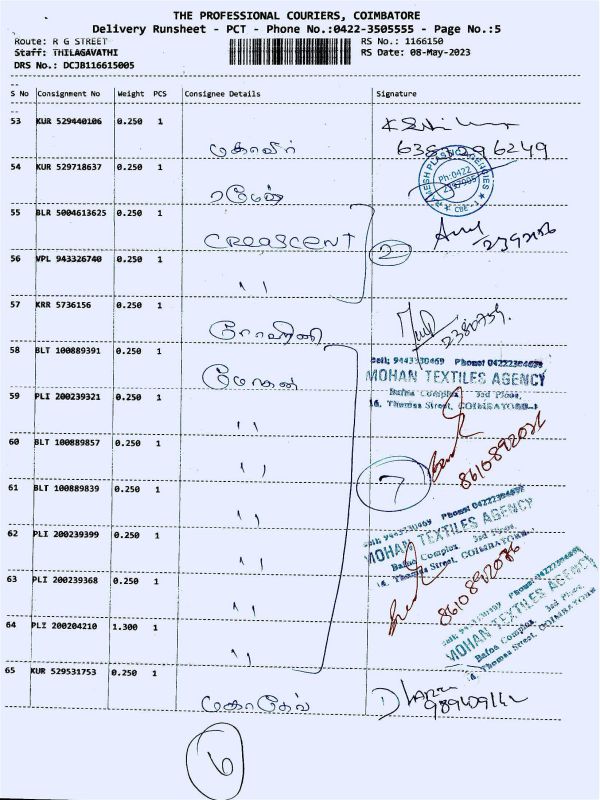 THE PROFESSIONAL COURIERS, COIMBATORE
Delivery Runsheet - PCT - Phone No.:0422-3505555 - Page No.:5
Route: R G STREET RS No.: 1166150
Staff: THILAGAVATHI RS Date: 08-May-2023
DRS No.: DCJB116615005
S No Consignment No Weight PCS Consignee Details Signature
53 KUR 529440106 0.250 1
மகாவீர் 6381296249
54 KUR 529718637 0.250 1
ரமேஷ் Ph:0422
55 BLR 5004613625 0.250 1
CREASCENT 2 2392156
56 VPL 943326740 0.250 1
"
57 KRR 5736156 0.250 1
ரோஹிணி 2380759
58 BLT 100889391 0.250 1
மோகன்
Cell: 9443330469 Phone: 04222304698
MOHAN TEXTILES AGENCY
Bafna Complex 3rd Floor,
16, Thomas Street, COIMBATORE-1
59 PLI 200239321 0.250 1
"
60 BLT 100889857 0.250 1
" 7 8610892086
61 BLT 100889839 0.250 1
"
62 PLI 200239399 0.250 1
"
MOHAN TEXTILES AGENCY
Bafna Complex 3rd Floor
16, Thomas Street, COIMBATORE
8610892086
63 PLI 200239368 0.250 1
"
64 PLZ 200204210 1.300 1
"
MOHAN TEXTILES AGENCY
Bafna Complex 3rd Floor,
Thomas Street, COIMBATORE
65 KUR 529531753 0.250 1
மகாதேவ் 1
6